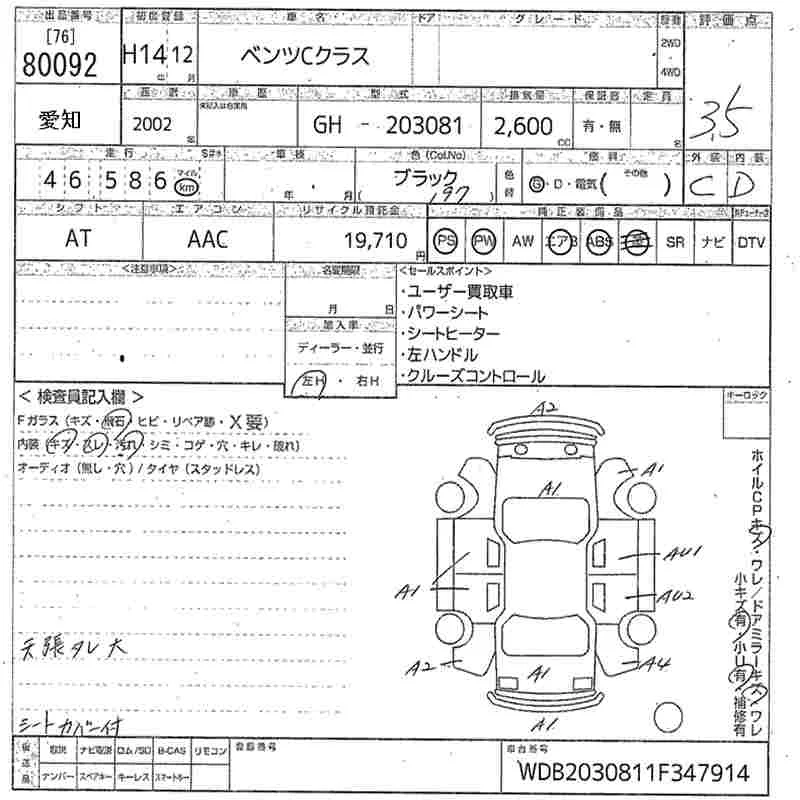 出品番号 初度登録 車名 ドア グレード 駆動 評価点
[76] 80092 H14年 12月 ベンツCクラス 2WD 4WD 3.5
年式 車歴 型式 排気量 保証書 定員
愛知 2002年 記入は自家用 GH - 203081 2,600cc 有・無 名
走行 S#キ 車検 色(Col.No) 燃料 外装 内装
46586 マイル km 年 月 ブラック (197) 色替 G・D・電気 (その他) C D
シフト エアコン リサイクル預託金 純正装備品
AT AAC 19,710円 PS PW AW エアB ABS SR ナビ DTV
<注意事項> 名変期限 <セールスポイント>
月 日
・ユーザー買取車
・パワーシート
・シートヒーター
・左ハンドル
・クルーズコントロール
輸入車
ディーラー・並行
左H・右H
<検査員記入欄> キーロック
Fガラス(キズ・飛石・ヒビ・リペア跡・X要)
内装(キズ・スレ・汚れ・シミ・コゲ・穴・キレ・破れ)
オーディオ(無し・穴)/タイヤ(スタッドレス)
A2
A1 A1
A1 AU1
AU2
A2 A1 A4
A1
ホイルCPキズ・ワレ/ドアミラーキズ/ワレ
小キズ有/小凹有/補修有
天張タレ大
シートカバー付
後送品 取説 ナビ取説 ロム/SD B-CAS リモコン 登録番号 車台番号
ナンバー スペアキー キーレス スマートキー WDB2030811F347914